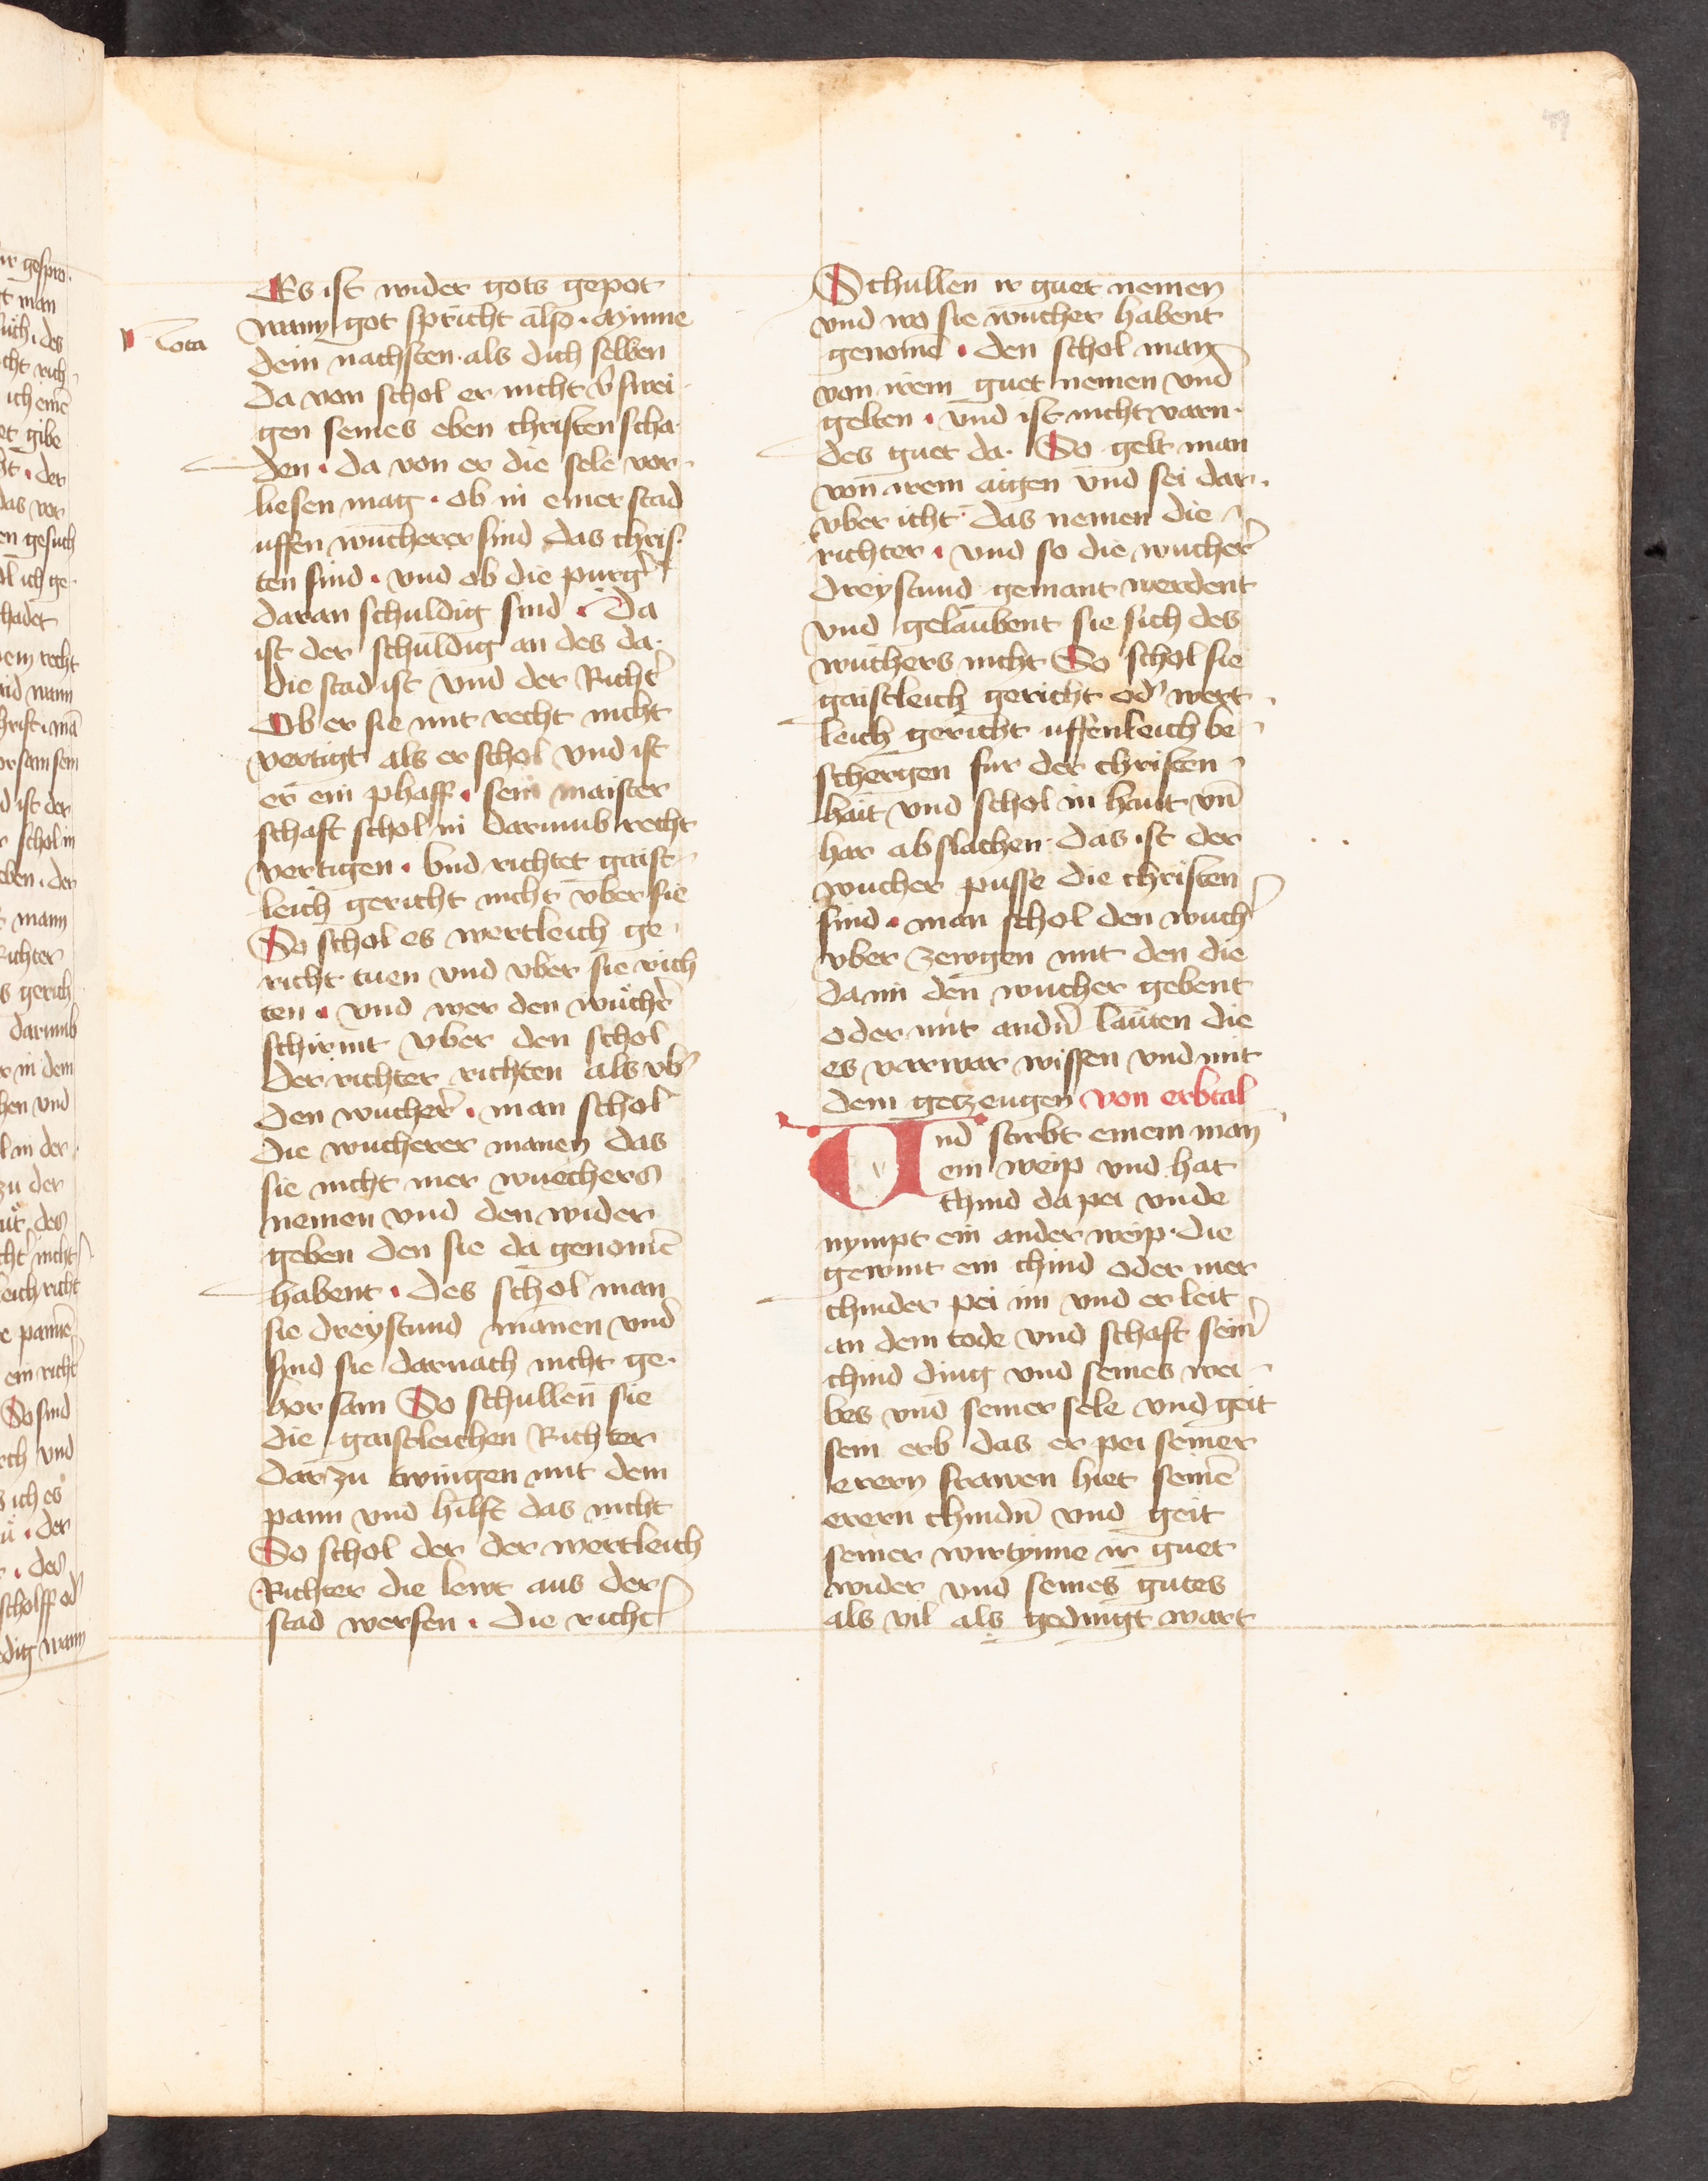 Es ist wider gots gepot
wann got spricht also · Mynne
Nota
dein nachsten · als dich selben
Da von schol er nicht v̾swei
gen seines eben christen scha
den · Da von er die sele vor
liesen mag · ob in einer stad
uffen wucherer sind das chris
ten sind · vnd ob die purg̾
daran schuldig sind · Da
ist der schuldig an des da
die stad ist vnd der Richt̾
Ob er sie mit recht nicht
vertigt als er schol vnd ist
er ein phaff · sein maister
schaft schol in darumb recht
vertigen · vnd richtet gaist
leich gericht nicht vber sie
So schol es wertleich ge
richt tuen vnd vber sie rich
ten · vnd wer den wuͤcher̾
schirmt vber den schol
der richter richten als vb̾
den wucher̾ · man schol
die wucherer manen das
sie nicht mer wuechers
nemen vnd den wider
geben den sie da genomē
habent · des schol man
sie dreystund manen vnd
sind sie darnach nicht ge
horsam So schullen sie
die gaistleichen Richter
dar zu twingen mit dem
pann vnd hilft das nicht
So schol der der wertleich
Richter die lewt aus der
stad wersen · die richt̾
Schullen ir guet nemen
vnd wo sie wucher habent
genomē · den schol man
von irem guet nemen vnd
gelten · vnd ist nicht varn
des guet da · So gelt man
von irem aigen vnd sei dar
vber icht das nemen die
richter · vnd so die wucher̾
dreystund gemant werdent
vnd gelaubent sie sich des
wuchers nicht So schol sie
gaistleich gericht od̾ wert
leich gericht uffenleich be
schergen fur der christen
hait vnd schol in haut vn̄
har abslachen · das ist der
wucher pusse die christen
sind · man schol den wuch̾
vber zewgen mit den die
da im den wucher gebent
oder mit andn̾ lauten die
es varwar wissen vnd mit
dem getzeugen von erbtal
Vnd stirbt einem man
ein weip vnd hat
chind da pei vnde
nympt ein ander weip · die
gewint ein chind oder mer
chinder pei im vnd er leit
an dem tode vnd schaft sein̾
chind ding vnd seines wei
bes vnd seiner sele vnd geit
sein erb das er pei seiner
erern frawen hiet seinē
erern chindn̾ vnd geit
seiner wirtynne ir guet
wider vnd seines gutes
als vil als gedingt wart